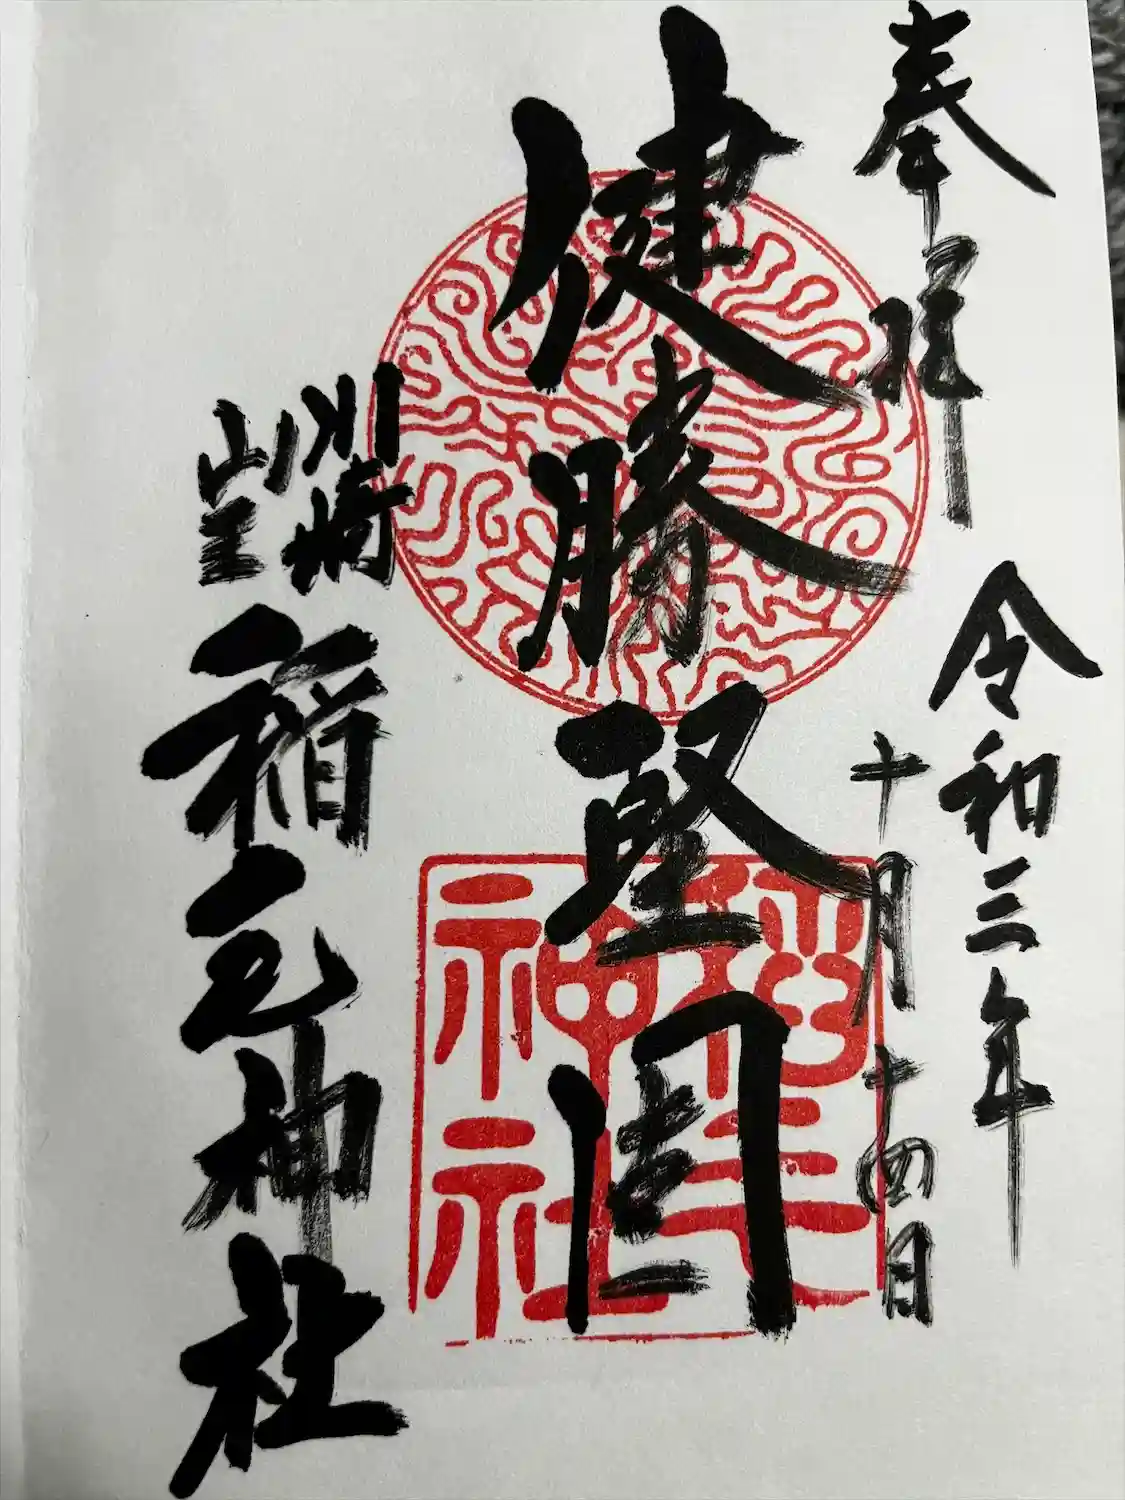 奉拝
令和三年
十月十四日
健勝堅固
川崎
山王
稲毛神社
稲毛
神社